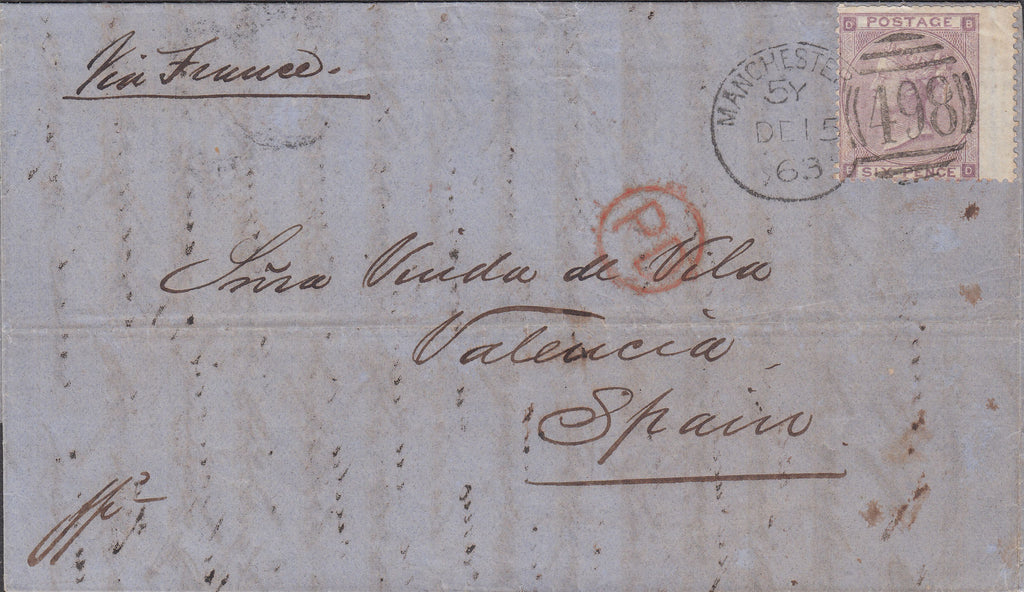 Via France.
D POSTAGE B
MANCHESTER
5Y
DE 15
63
498
B SIX PENCE D
PD
Sñra Viuda de Vila
Valencia
Spain